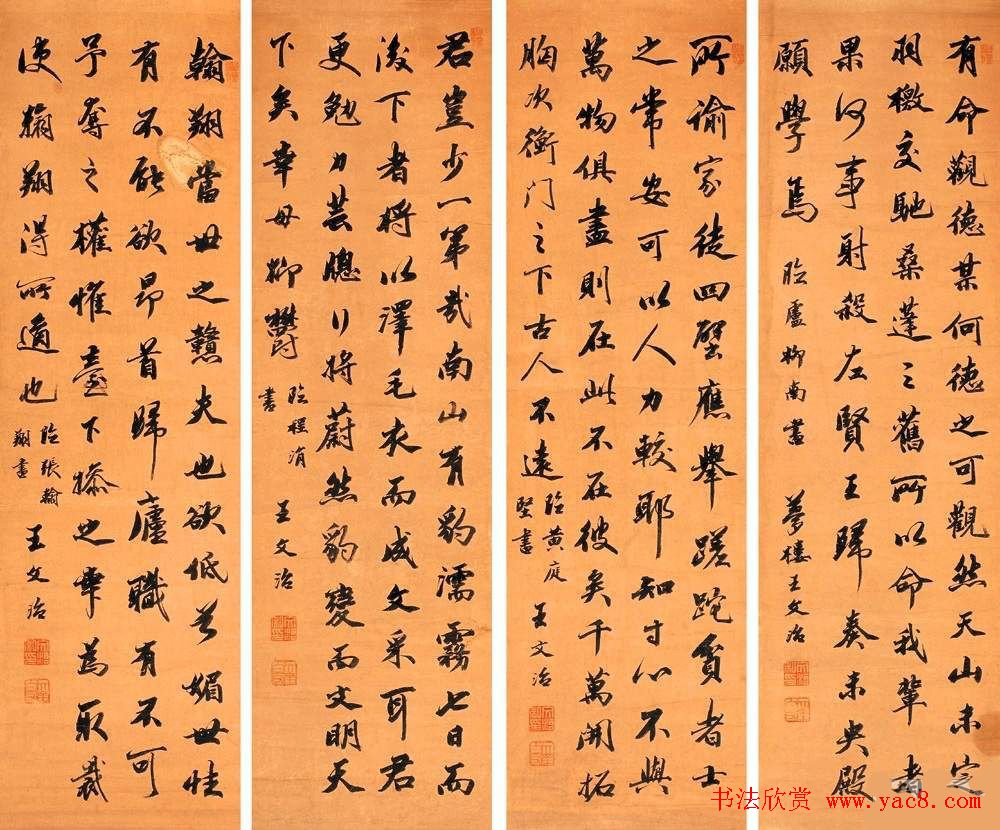 有命觀德某何德之可觀然天山未定
羽檄交馳桑蓬之舊所以命我輩者
果何事射殺左賢王歸奏未央殿
願學焉 臨盧柳南書 夢樓王文治
所諭家徒四壁應舉蹉跎貧者士
之常安可以人力較耶知寸心不與
萬物俱盡則在此不在彼矣千萬開拓
胸次衡门之下古人不遠 臨黃庭
堅書 王文治
君豈少一第哉南山有豹濡霧七日而
後下者將以澤毛衣而成文采耳君
更勉力芸牕行將蔚然豹變而文明天
下矣幸毋抑鬱 臨程洵
書 王文治
翰翔當世之戇夫也欲低首媚世性
有不能欲昂首歸廬職有不可
予奪之權惟臺下操之幸為取裁
使翰翔得所適也 臨張翰
翔書 王文治
书法欣赏 www.yac8.com